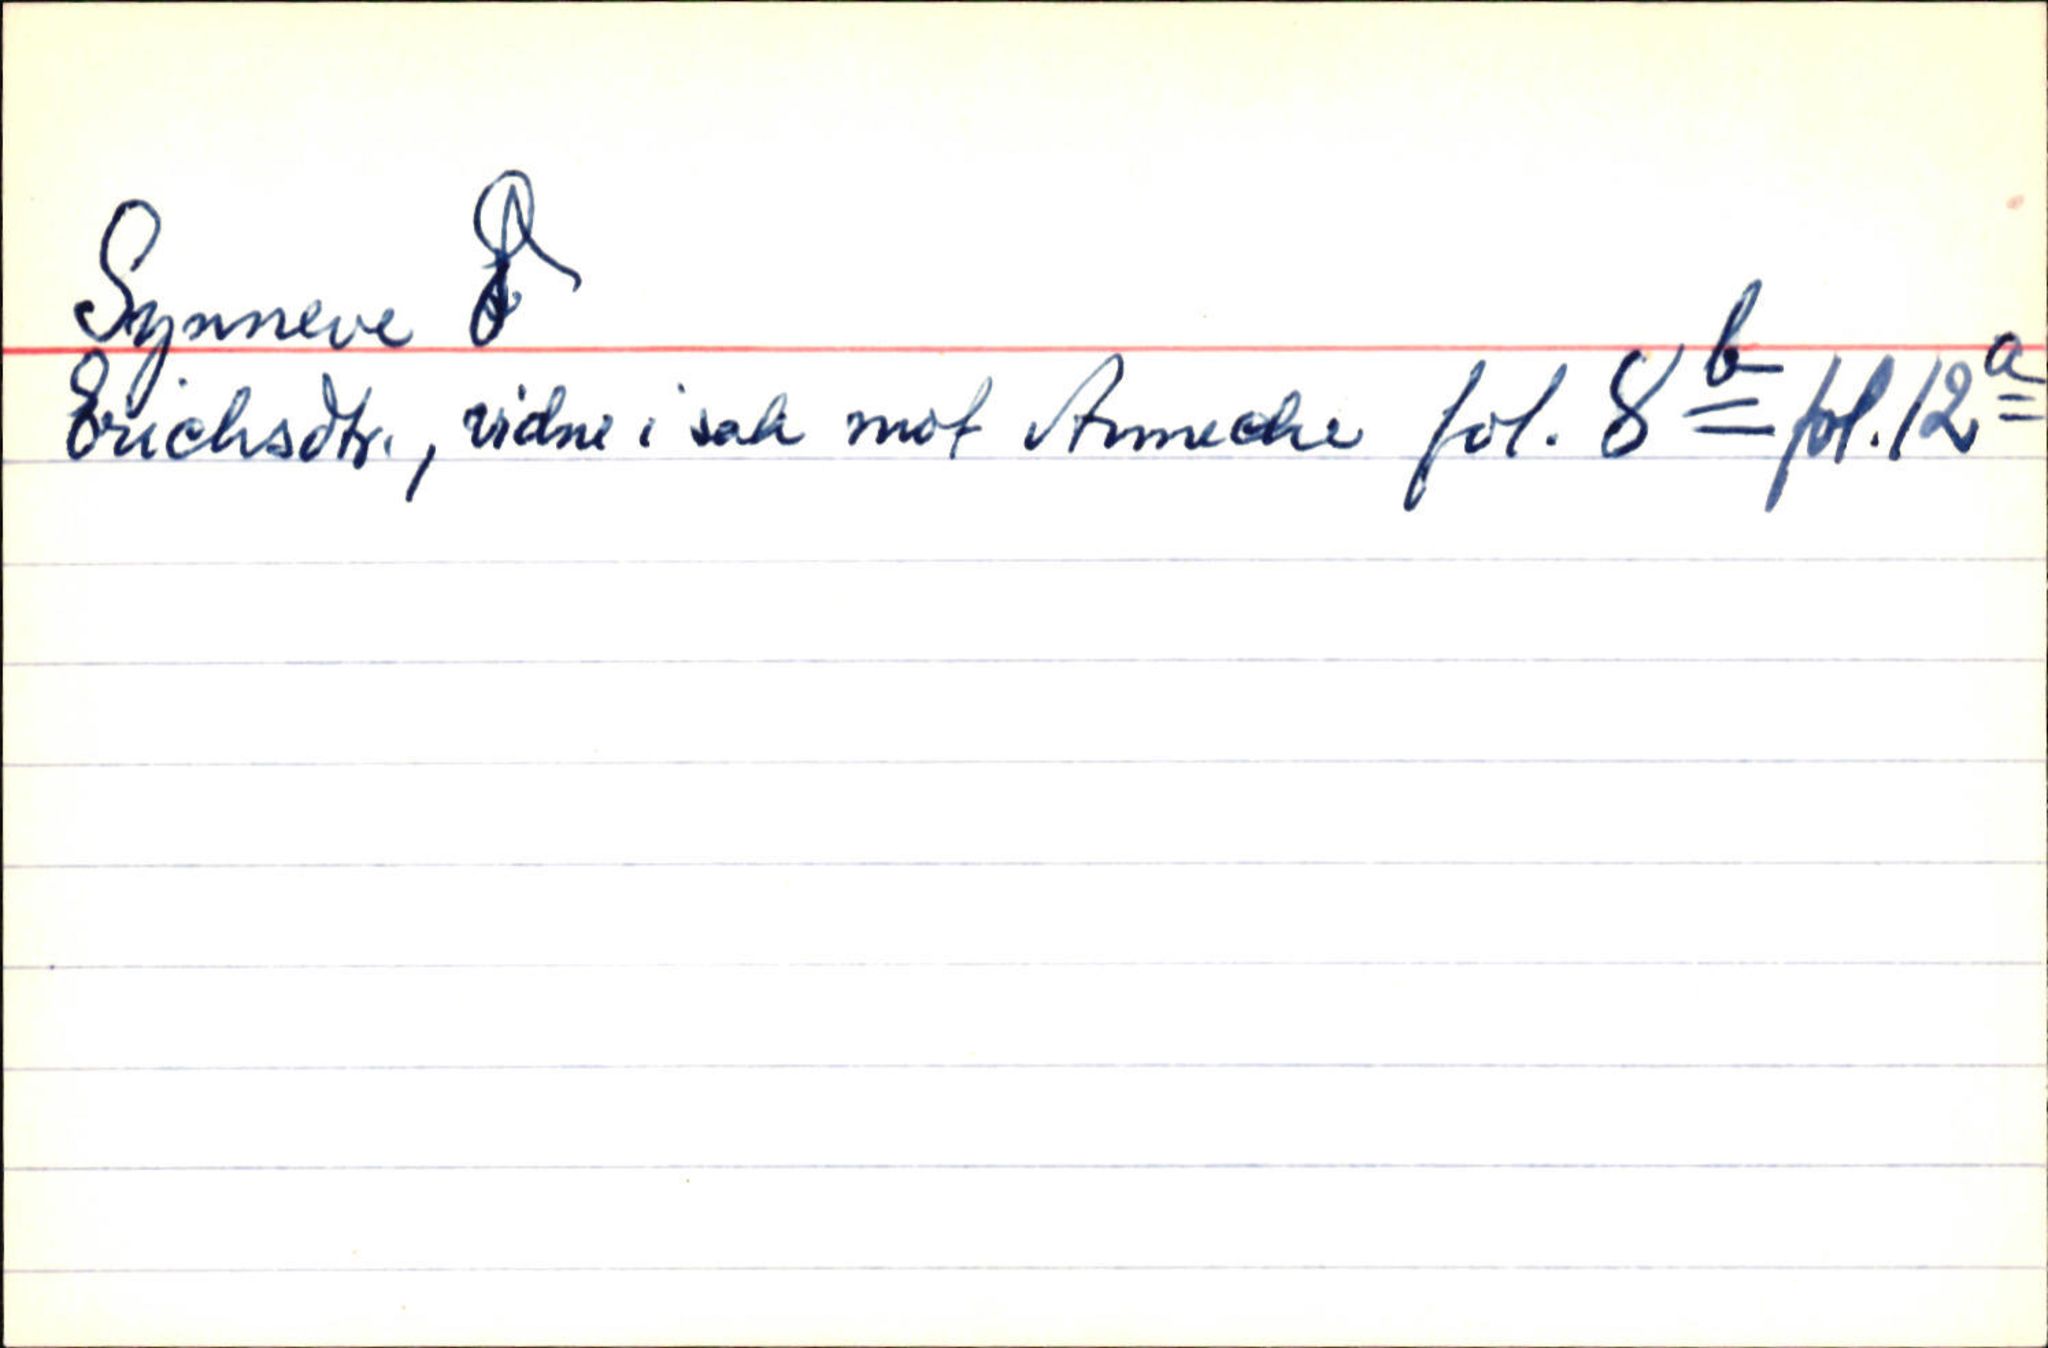 Synneve
Erichsdtr., vidne i sak mot Annecke fol. 8b fol. 12a